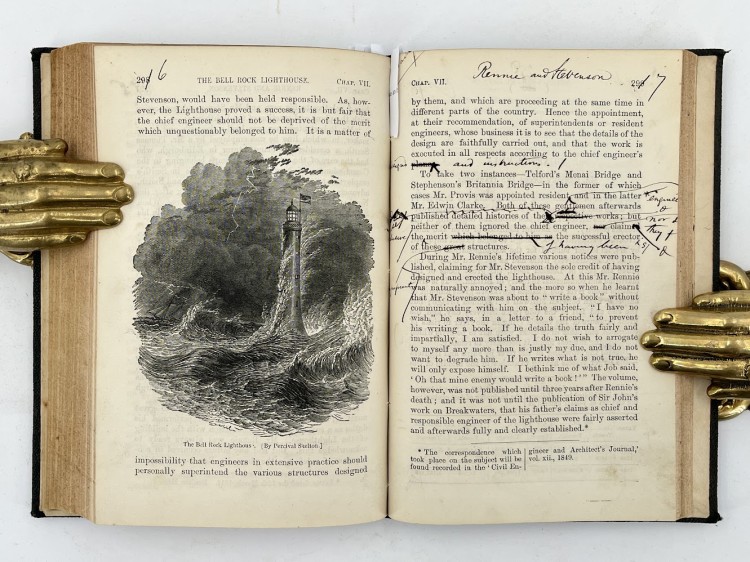 296 THE BELL ROCK LIGHTHOUSE. CHAP. VII.
Stevenson, would have been held responsible. As, how-
ever, the Lighthouse proved a success, it is but fair that
the chief engineer should not be deprived of the merit
which unquestionably belonged to him. It is a matter of
The Bell Rock Lighthouse. [By Percival Skelton.]
impossibility that engineers in extensive practice should
personally superintend the various structures designed
CHAP. VII. Rennie and Stevenson 297
by them, and which are proceeding at the same time in
different parts of the country. Hence the appointment,
at their recommendation, of superintendents or resident
engineers, whose business it is to see that the details of the
design are faithfully carried out, and that the work is
executed in all respects according to the chief engineer's
plans. and instructions.
To take two instances—Telford's Menai Bridge and
Stephenson's Britannia Bridge—in the former of which
cases Mr. Provis was appointed resident, and in the latter
Mr. Edwin Clarke. Both of these gentlemen afterwards
published detailed histories of the respective works; but
neither of them ignored the chief engineer, claim
the merit which belonged to him as the successful erector
of these great structures. of having been
During Mr. Rennie's lifetime various notices were pub-
lished, claiming for Mr. Stevenson the sole credit of having
designed and erected the lighthouse. At this Mr. Rennie
was naturally annoyed; and the more so when he learnt
that Mr. Stevenson was about to "write a book" without
communicating with him on the subject. "I have no
wish," he says, in a letter to a friend, "to prevent
his writing a book. If he details the truth fairly and
impartially, I am satisfied. I do not wish to arrogate
to myself any more than is justly my due, and I do not
want to degrade him. If he writes what is not true, he
will only expose himself. I bethink me of what Job said,
'Oh that mine enemy would write a book!'" The volume,
however, was not published until three years after Rennie's
death; and it was not until the publication of Sir John's
work on Breakwaters, that his father's claims as chief and
responsible engineer of the lighthouse were fairly asserted
and afterwards fully and clearly established.*
* The correspondence which
took place on the subject will be
found recorded in the 'Civil En-
gineer and Architect's Journal,'
vol. xii., 1849.